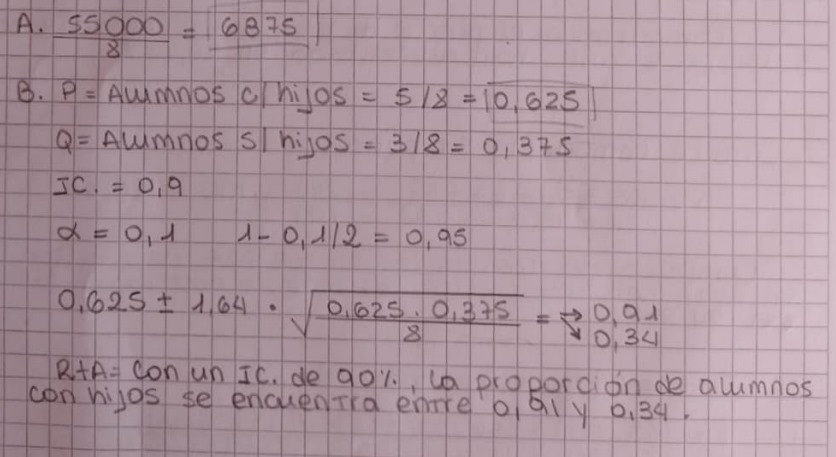 A. 55000/8 = 6875
B. P = Alumnos c/ hijos = 5/8 = 0,625
Q = Alumnos s/ hijos = 3/8 = 0,375
IC. = 0,9
α = 0,1 1 - 0,1/2 = 0,95
0,625 ± 1,64 · √(0,625 . 0,375 / 8) = → 0,91
↘ 0,34
R+A = Con un IC. de 90%, la proporción de alumnos
con hijos se encuentra entre 0,91 y 0,34.